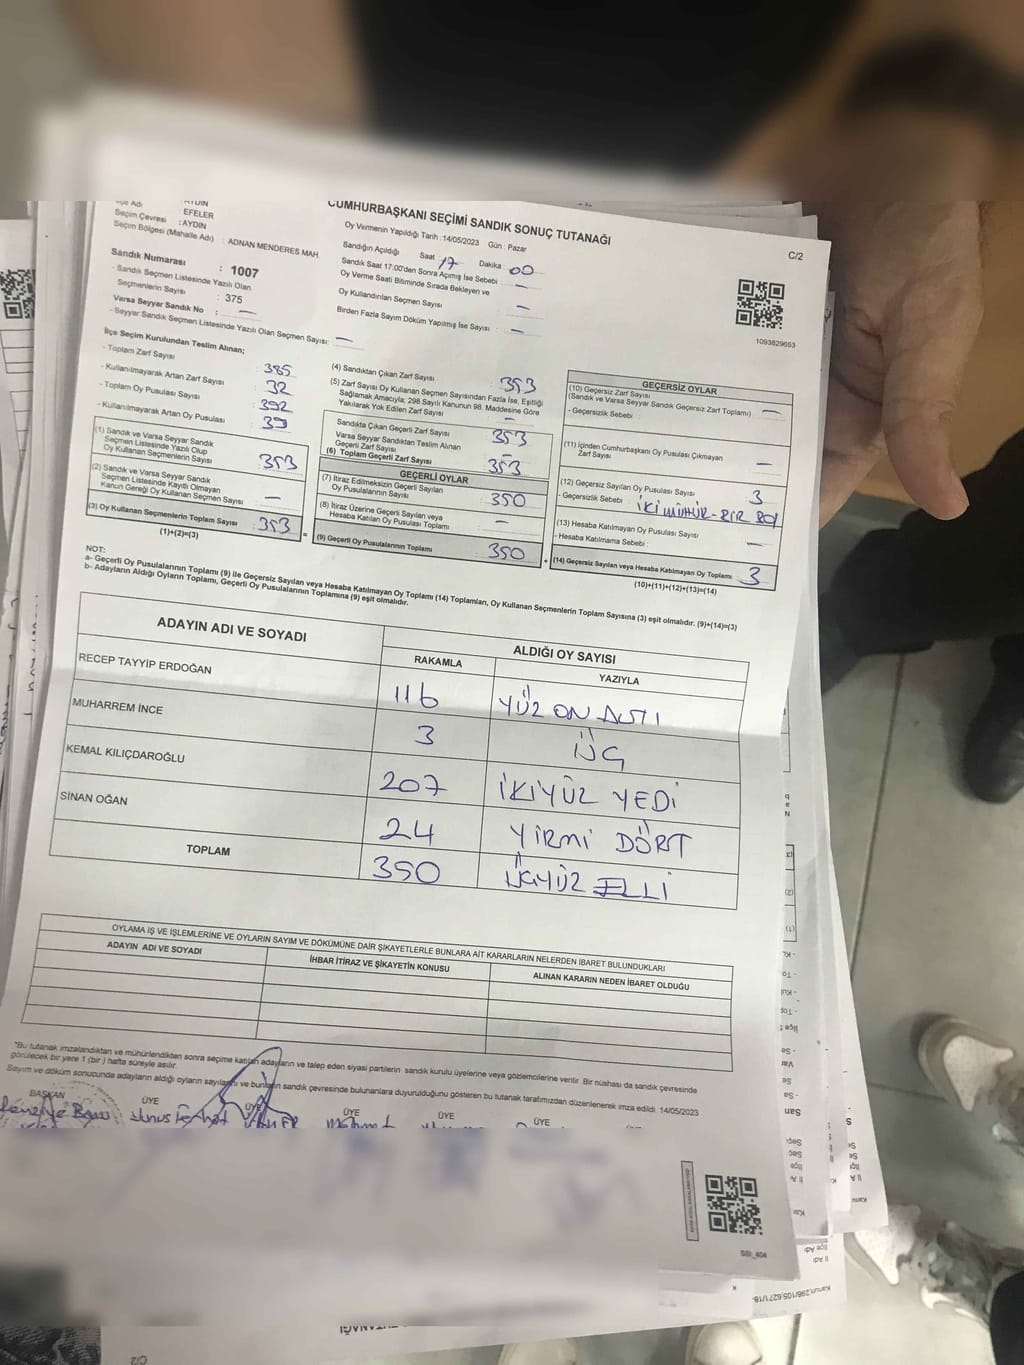 AYDIN
İlçe Adı : EFELER
Seçim Çevresi : AYDIN
Seçim Bölgesi (Mahalle Adı) : ADNAN MENDERES MAH.
Sandık Numarası : 1007
- Sandık Seçmen Listesinde Yazılı Olan
Seçmenlerin Sayısı : 375
Varsa Seyyar Sandık No : —
- Seyyar Sandık Seçmen Listesinde Yazılı Olan Seçmen Sayısı: —
CUMHURBAŞKANI SEÇİMİ SANDIK SONUÇ TUTANAĞI
C/2
Oy Vermenin Yapıldığı Tarih :14/05/2023 Gün : Pazar
Sandığın Açıldığı Saat 17 Dakika : 00
Sandık Saat 17:00'den Sonra Açılmış İse Sebebi : —
Oy Verme Saati Bitiminde Sırada Bekleyen ve
Oy Kullandırılan Seçmen Sayısı —
Birden Fazla Sayım Döküm Yapılmış İse Sayısı : —
1093829653
İlçe Seçim Kurulundan Teslim Alınan;
- Toplam Zarf Sayısı : 385
- Kullanılmayarak Artan Zarf Sayısı : 32
- Toplam Oy Pusulası Sayısı : 392
- Kullanılmayarak Artan Oy Pusulası : 39
(1) Sandık ve Varsa Seyyar Sandık
Seçmen Listesinde Yazılı Olup
Oy Kullanan Seçmenlerin Sayısı : 353
(2) Sandık ve Varsa Seyyar Sandık
Seçmen Listesinde Kayıtlı Olmayan
Kanun Gereği Oy Kullanan Seçmen Sayısı : —
(3) Oy Kullanan Seçmenlerin Toplam Sayısı : 353
(1)+(2)=(3)
(4) Sandıktan Çıkan Zarf Sayısı : 353
(5) Zarf Sayısı Oy Kullanan Seçmen Sayısından Fazla İse, Eşitliği
Sağlamak Amacıyla; 298 Sayılı Kanunun 98. Maddesine Göre
Yakılarak Yok Edilen Zarf Sayısı : —
Sandıkta Çıkan Geçerli Zarf Sayısı : 353
Varsa Seyyar Sandıktan Teslim Alınan
Geçerli Zarf Sayısı : —
(6) Toplam Geçerli Zarf Sayısı : 353
GEÇERLİ OYLAR
(7) İtiraz Edilmeksizin Geçerli Sayılan
Oy Pusulalarının Sayısı : 350
(8) İtiraz Üzerine Geçerli Sayılan veya
Hesaba Katılan Oy Pusulası Toplamı : —
(9) Geçerli Oy Pusulalarının Toplamı : 350
GEÇERSİZ OYLAR
(10) Geçersiz Zarf Sayısı
(Sandık ve Varsa Seyyar Sandık Geçersiz Zarf Toplamı) : —
- Geçersizlik Sebebi :
(11) İçinden Cumhurbaşkanı Oy Pusulası Çıkmayan
Zarf Sayısı : —
(12) Geçersiz Sayılan Oy Pusulası Sayısı : 3
- Geçersizlik Sebebi : İKİ MÜHÜR - BİR BOŞ
(13) Hesaba Katılmayan Oy Pusulası Sayısı : —
- Hesaba Katılmama Sebebi :
(14) Geçersiz Sayılan veya Hesaba Katılmayan Oy Toplamı : 3
(10)+(11)+(12)+(13)=(14)
NOT:
a- Geçerli Oy Pusulalarının Toplamı (9) ile Geçersiz Sayılan veya Hesaba Katılmayan Oy Toplamı (14) Toplamları, Oy Kullanan Seçmenlerin Toplam Sayısına (3) eşit olmalıdır. (9)+(14)=(3)
b- Adayların Aldığı Oyların Toplamı, Geçerli Oy Pusulalarının Toplamına (9) eşit olmalıdır.
ADAYIN ADI VE SOYADI
ALDIĞI OY SAYISI
RAKAMLA YAZIYLA
RECEP TAYYİP ERDOĞAN 116 YÜZ ON ALTI
MUHARREM İNCE 3 ÜÇ
KEMAL KILIÇDAROĞLU 207 İKİYÜZ YEDİ
SİNAN OĞAN 24 YİRMİ DÖRT
TOPLAM 350 ÜÇYÜZ ELLİ
OYLAMA İŞ VE İŞLEMLERİNE VE OYLARIN SAYIM VE DÖKÜMÜNE DAİR ŞİKAYETLERLE BUNLARA AİT KARARLARIN NELERDEN İBARET BULUNDUKLARI
ADAYIN ADI VE SOYADI İHBAR İTİRAZ VE ŞİKAYETİN KONUSU ALINAN KARARIN NEDEN İBARET OLDUĞU
*Bu tutanak imzalandıktan ve mühürlendikten sonra seçime katılan adayların ve talep eden siyasi partilerin sandık kurulu üyelerine veya gözlemcilerine verilir. Bir nüshası da sandık çevresinde
görülecek bir yere 1 (bir ) hafta süreyle asılır.
Sayım ve döküm sonucunda adayların aldığı oyların sayılarını ve bunların sandık çevresinde bulunanlara duyurulduğunu gösteren bu tutanak tarafımızdan düzenlenerek imza edildi. 14/05/2023
BAŞKAN ÜYE ÜYE ÜYE ÜYE ÜYE
Mehmet